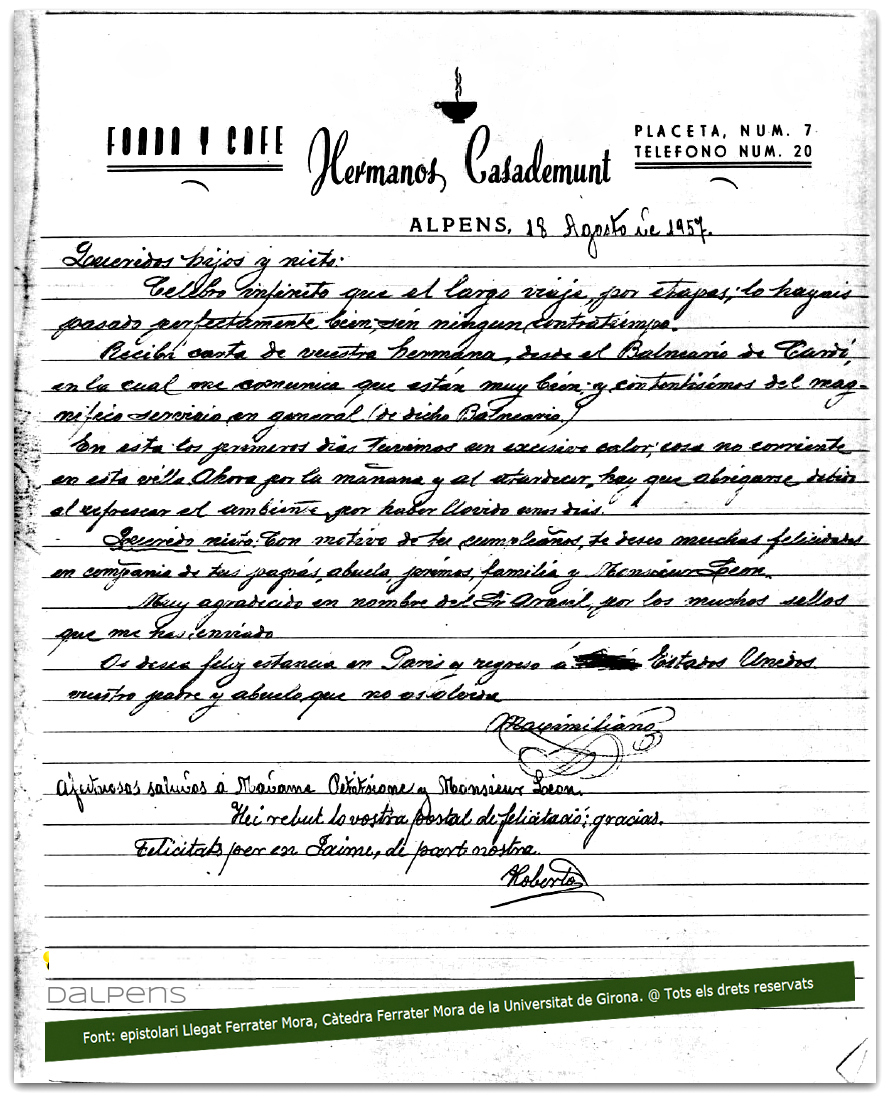 FONDA Y CAFE
Hermanos Casademunt
PLACETA, NUM. 7
TELEFONO NUM. 20
ALPENS, 18 Agosto de 1957.
Queridos hijos y nieto:
Celebro infinito que el largo viaje, por etapas, lo hayais
pasado perfectamente bien, sin ningun contratiempo.
Recibí carta de vuestra hermana, desde el Balneario de Cardó,
en la cual me comunica que están muy bien y contentísimos del mag-
nifico servicio en general (de dicho Balneario.)
En esta los primeros dias tuvimos un excesivo calor, cosa no corriente
en esta villa Ahora por la mañana y al atardecer, hay que abrigarse debido
al refrescar el ambiente, por haber llovido unos dias.
Querido nieto: Con motivo de tu cumpleaños, te deseo muchas felicidades
en compañia de tus papás, abuela, primos, familia y Monsieur Leon.
Muy agradecido en nombre del Sr. por los muchos sellos
que me has enviado
Os desea feliz estancia en Paris y regreso á Estados Unidos.
vuestro padre y abuelo que no os olvida
Maximiliano
Afectuosos saludos á Madame y Monsieur Leon.
Hei rebut la vostra postal de felicitació; gracias.
Felicitats per en Jaime, de part nostra.
Roberto
DALPENS
Font: epistolari Llegat Ferrater Mora, Càtedra Ferrater Mora de la Universitat de Girona. @ Tots els drets reservats